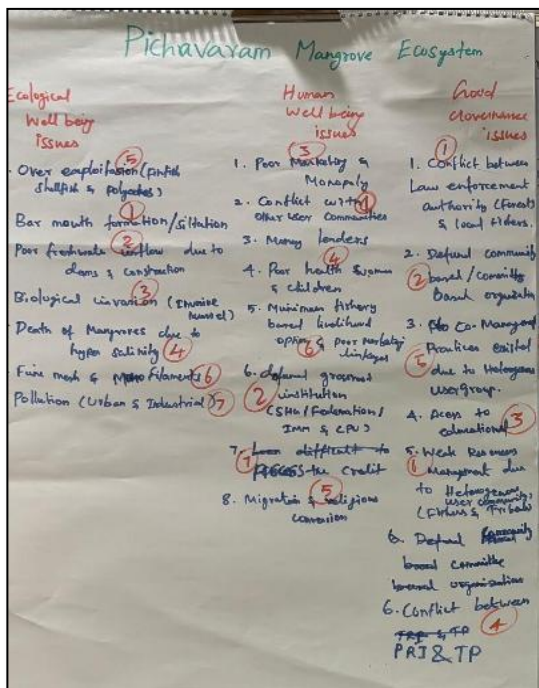 Pichavaram Mangrove Ecosystem
Ecological
Well being
issues
Over exploitation (finfish
shellfish & polychaetes)
5
Bar mouth formation/siltation
1
Poor freshwate inflow due to
dams & construction
2
Biological invasion (Invasive
mussel)
3
Death of Mangroves due to
hyper salinity
4
Fine mesh & Mono filaments
6
Pollution (Urban & Industrial)
7
Human
Well being
issues
3
1. Poor Marketing &
Monopoly
2. Conflict with
other user communities
1
3. Money lenders
4
4. Poor health women
& children
5. Minimum fishery
based livelihood
option & poor marketing
linkages
6
6. defunct grassroot
institution
2
(SHGs/Federation/
IMM & CPU)
7. Loan difficult to
access the credit
7
8. Migration & religious
conversion
5
Good
Governance
issues
1
1. Conflict between
Law enforcement
authority (Forest)
& local fishers.
2. Defunct community
based/Committee
Based organization
2
3. No Co-Management
Practices existed
due to Heterogenous
usergroup.
5
4. Acces to
educational
3
5. Weak Resources
Management due
to Heterogenous
user community
(Fishers & Tribals)
1
6. Defunct Community
based committee
organisations
6. Conflict between
TP
PRI & TP
4